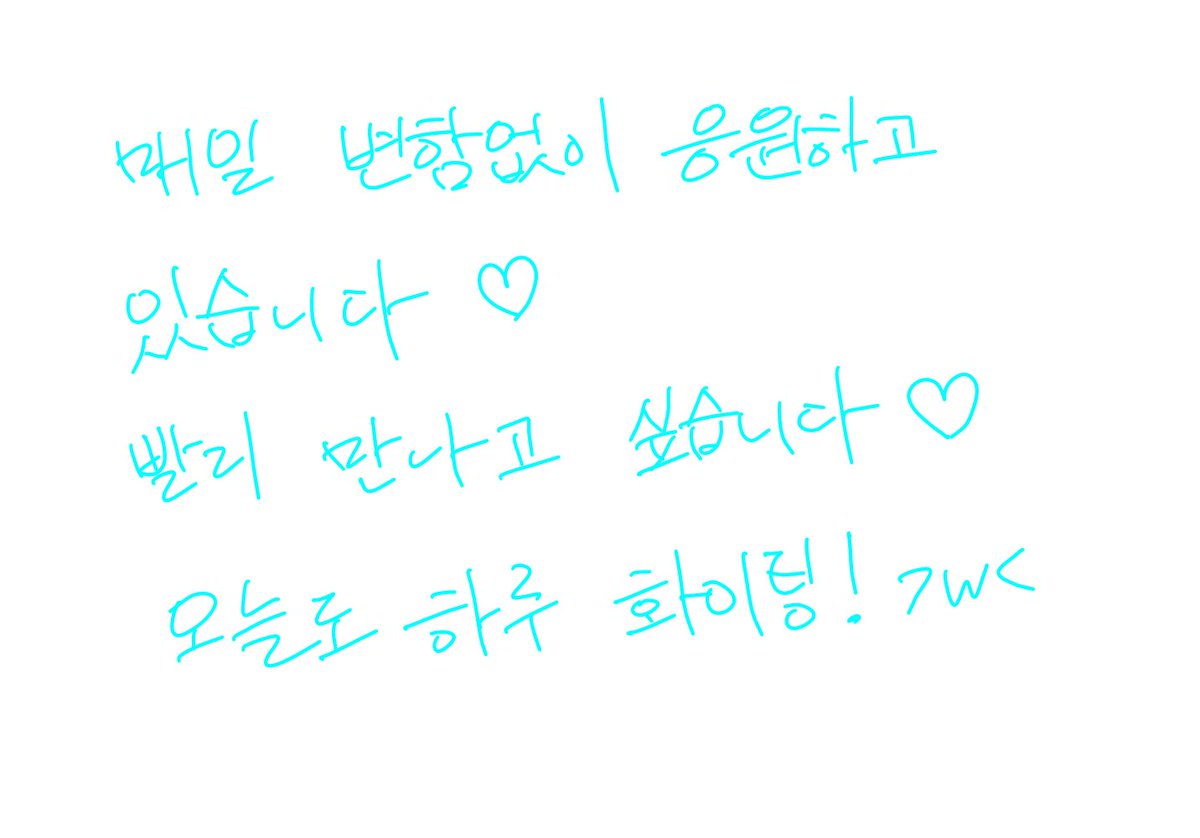 매일 변함없이 응원하고
있습니다 ♡
빨리 만나고 싶습니다 ♡
오늘도 하루 화이팅! >w<